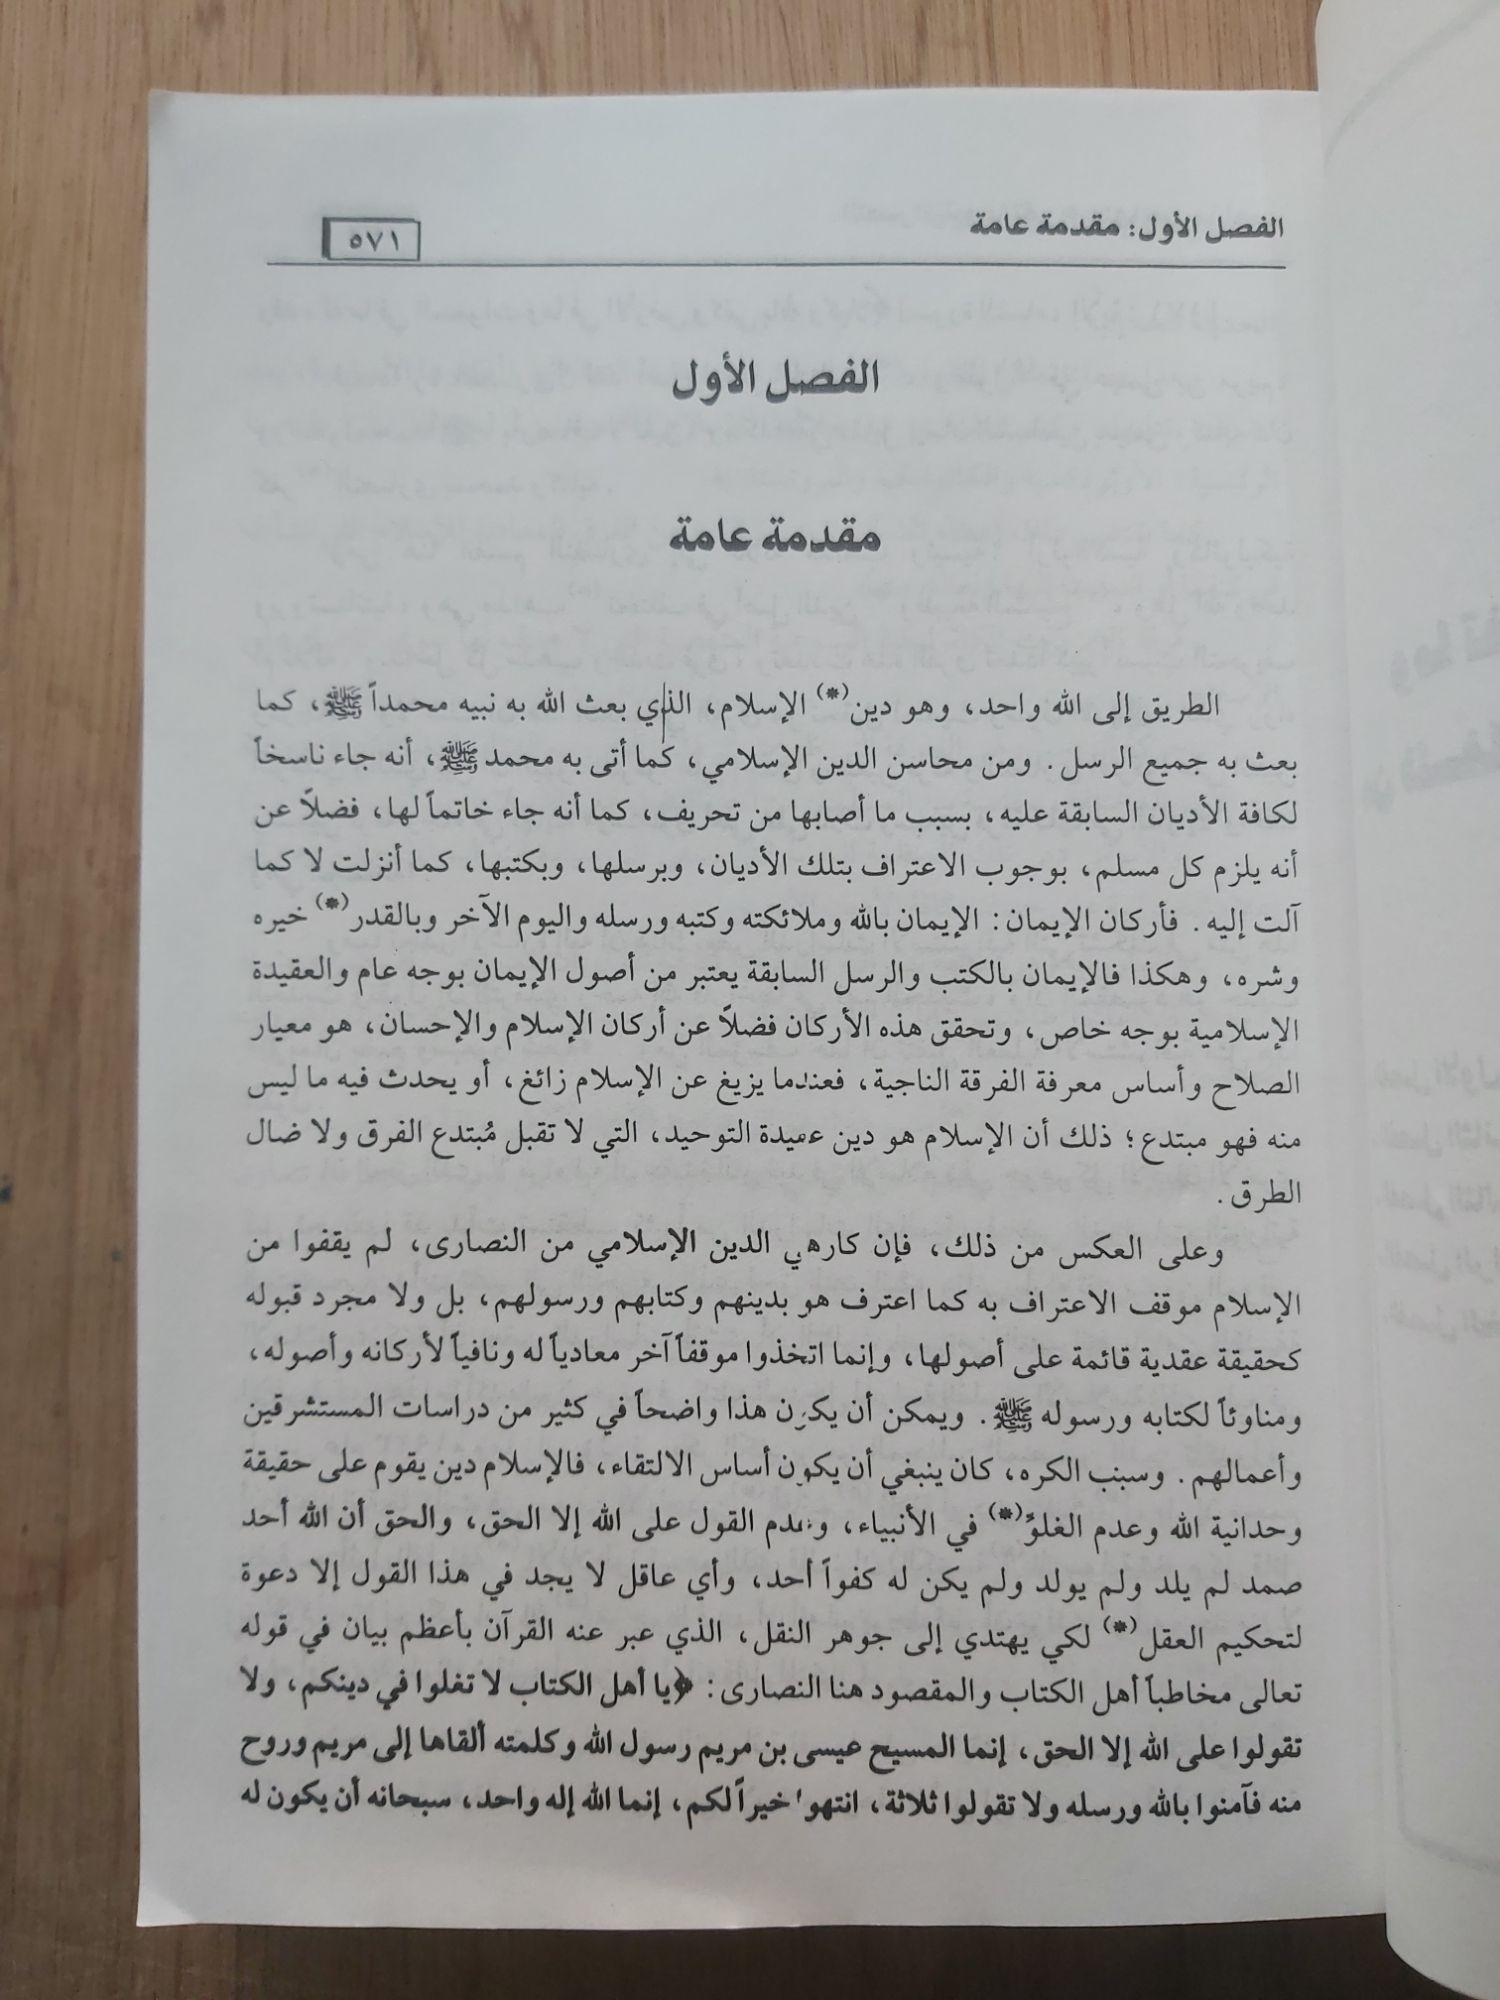 الفصل الأول: مقدمة عامة
٥٧١
الفصل الأول
مقدمة عامة
الطريق إلى الله واحد، وهو دين(*) الإسلام، الذي بعث الله به نبيه محمداً ﷺ، كما
بعث به جميع الرسل. ومن محاسن الدين الإسلامي، كما أتى به محمد ﷺ، أنه جاء ناسخاً
لكافة الأديان السابقة عليه، بسبب ما أصابها من تحريف، كما أنه جاء خاتماً لها، فضلاً عن
أنه يلزم كل مسلم، بوجوب الاعتراف بتلك الأديان، وبرسلها، وبكتبها، كما أنزلت لا كما
آلت إليه. فأركان الإيمان: الإيمان بالله وملائكته وكتبه ورسله واليوم الآخر وبالقدر(*) خيره
وشره، وهكذا فالإيمان بالكتب والرسل السابقة يعتبر من أصول الإيمان بوجه عام والعقيدة
الإسلامية بوجه خاص، وتحقق هذه الأركان فضلاً عن أركان الإسلام والإحسان، هو معيار
الصلاح وأساس معرفة الفرقة الناجية، فعندما يزيغ عن الإسلام زائغ، أو يحدث فيه ما ليس
منه فهو مبتدع؛ ذلك أن الإسلام هو دين عقيدة التوحيد، التي لا تقبل مُبتدع الفرق ولا ضال
الطرق.
وعلى العكس من ذلك، فإن كارهي الدين الإسلامي من النصارى، لم يقفوا من
الإسلام موقف الاعتراف به كما اعترف هو بدينهم وكتابهم ورسولهم، بل ولا مجرد قبوله
كحقيقة عقدية قائمة على أصولها، وإنما اتخذوا موقفاً آخر معادياً له ونافياً لأركانه وأصوله،
ومناوئاً لكتابه ورسوله ﷺ. ويمكن أن يكون هذا واضحاً في كثير من دراسات المستشرقين
وأعمالهم. وسبب الكره، كان ينبغي أن يكون أساس الالتقاء، فالإسلام دين يقوم على حقيقة
وحدانية الله وعدم الغلوّ(*) في الأنبياء، وعدم القول على الله إلا الحق، والحق أن الله أحد
صمد لم يلد ولم يولد ولم يكن له كفواً أحد، وأي عاقل لا يجد في هذا القول إلا دعوة
لتحكيم العقل(*) لكي يهتدي إلى جوهر النقل، الذي عبر عنه القرآن بأعظم بيان في قوله
تعالى مخاطباً أهل الكتاب والمقصود هنا النصارى: ﴿يا أهل الكتاب لا تغلوا في دينكم، ولا
تقولوا على الله إلا الحق، إنما المسيح عيسى بن مريم رسول الله وكلمته ألقاها إلى مريم وروح
منه فآمنوا بالله ورسله ولا تقولوا ثلاثة، انتهوا خيراً لكم، إنما الله إله واحد، سبحانه أن يكون له